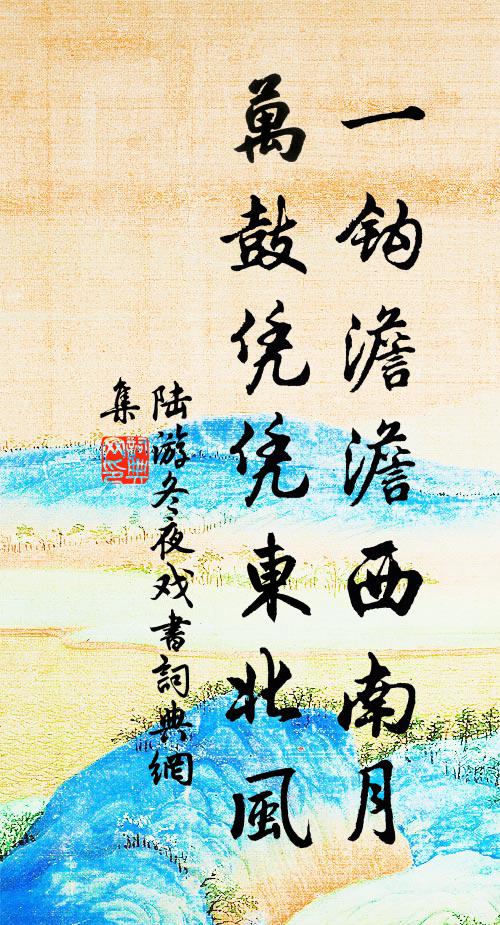 一鈎澹澹西南月
萬鼓凭凭東北風
陆游冬夜戏書詞典網
集